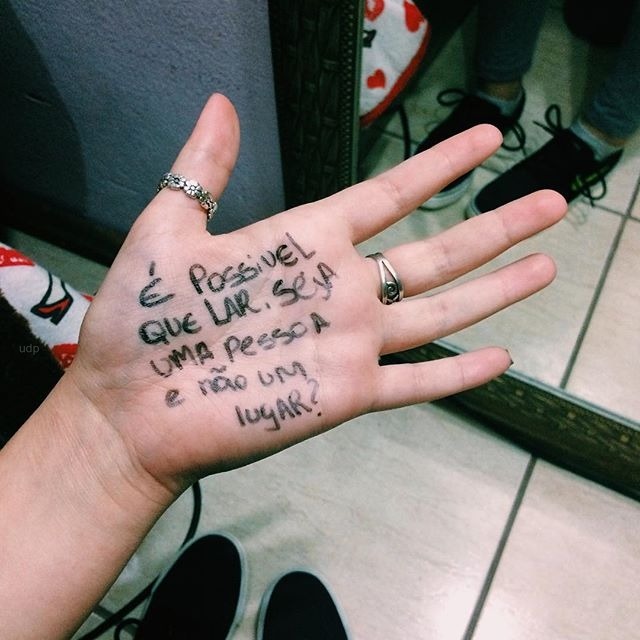 É POSSIVEL
QUE LAR, SEJA
UMA PESSOA
e não um
lugAR?
udp